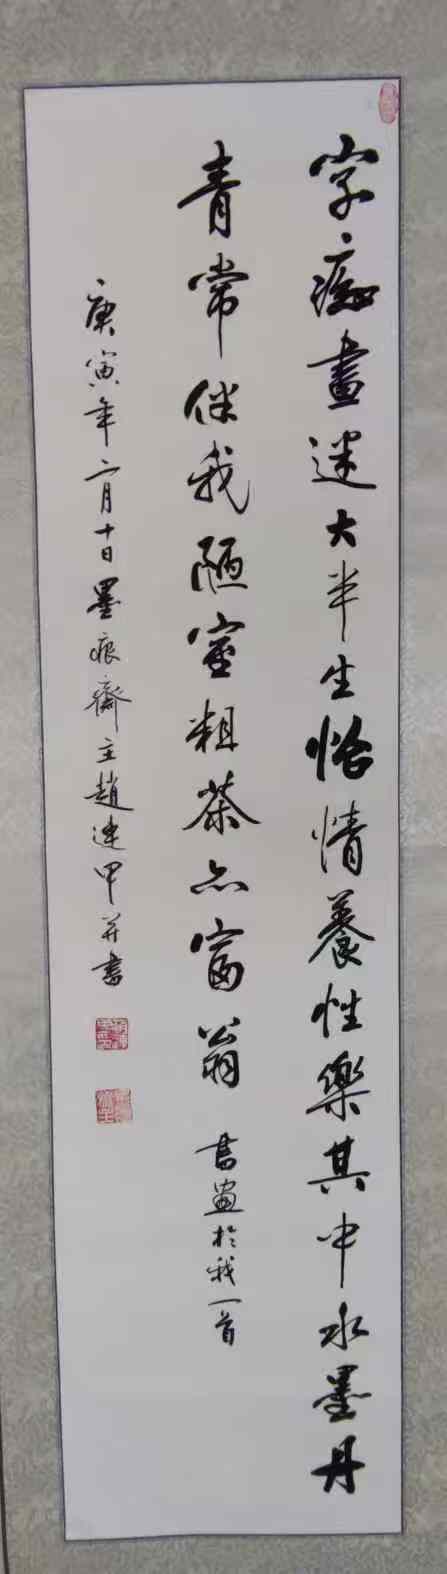 字癡畫迷大半生怡情養性樂其中水墨丹
青常伴我陋室粗茶亦富翁 書畫於我一首
庚寅年二月十日墨痕齋主趙连甲并書